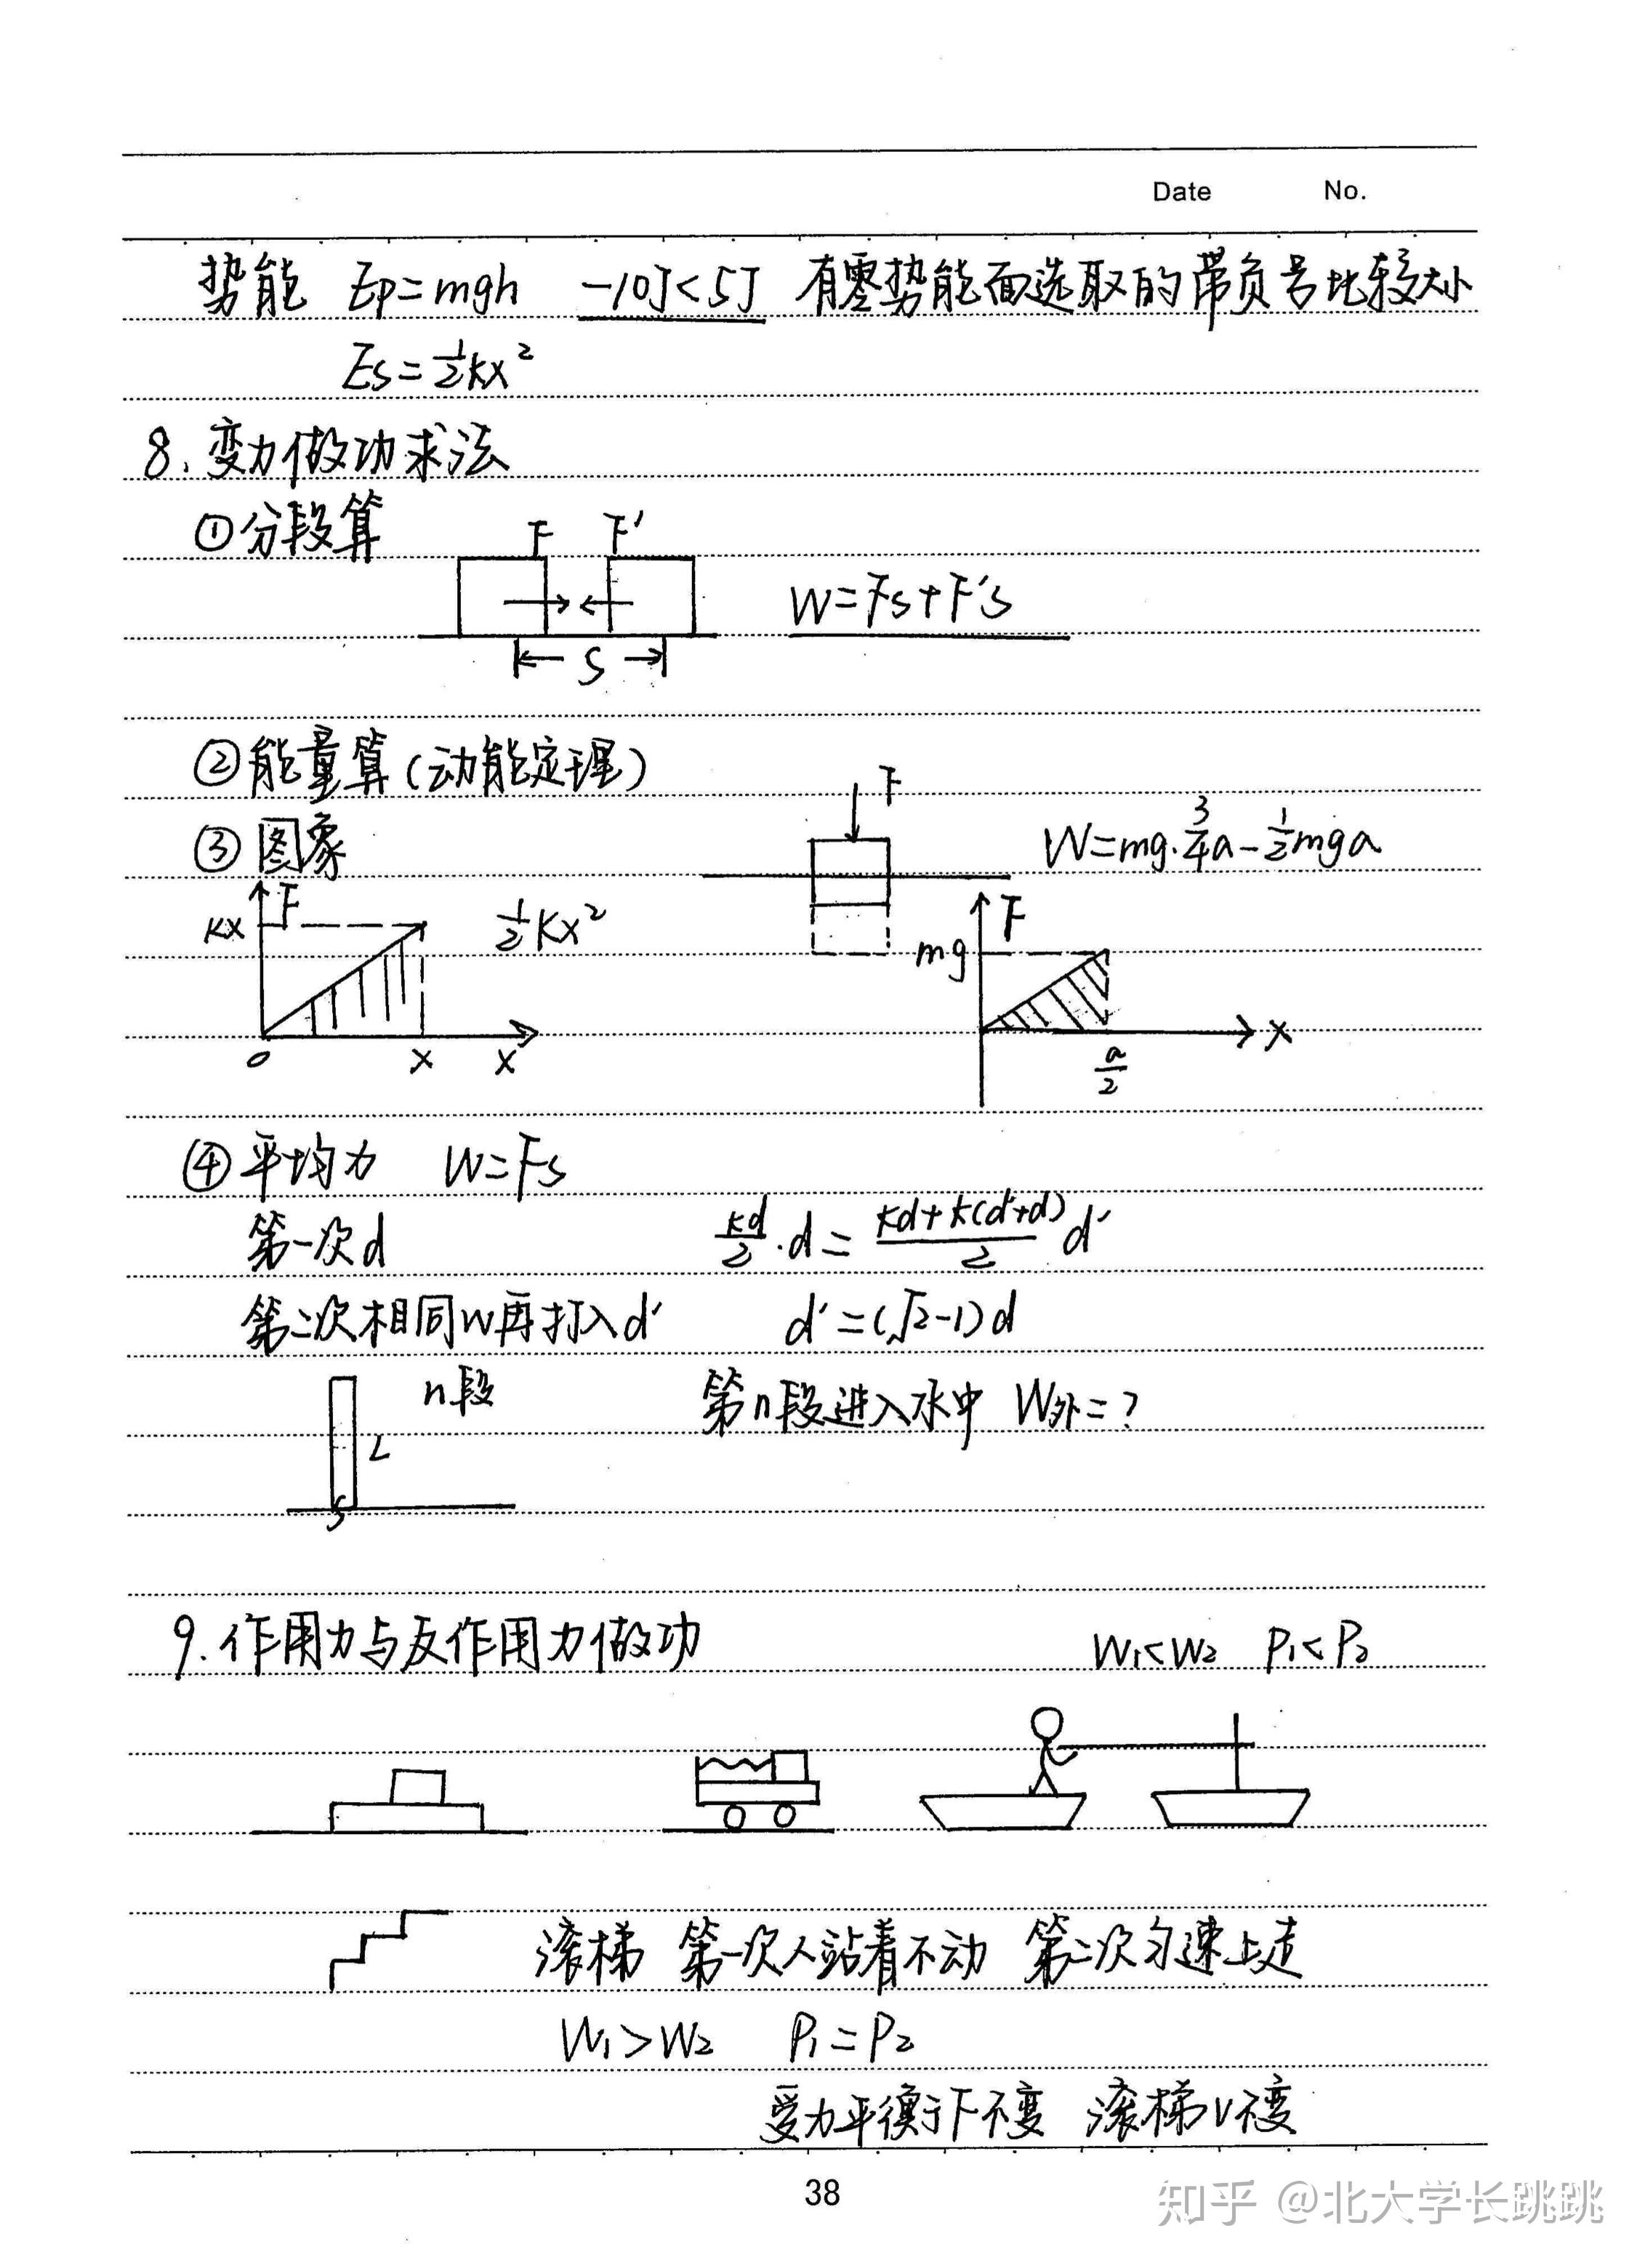 Date No.
势能 Ep=mgh -10J<5J 有零势能面选取的带负号比较大小
Es=½kx²
8.变力做功求法
①分段算
F F'
W=Fs+F's
S
②能量算(动能定理)
F
③图象
W=mg·¾a-½mga
F
kx
½kx²
F
mg
0 x x
a/2
x
④平均力 W=Fs
第一次d kd/2·d=(kd+k(d'+d))/2 d'
第二次相同W再打入d' d'=(√2-1)d
n段 第n段进入水中 W外=?
L
S
9.作用力与反作用力做功 W₁<W₂ P₁<P₂
滚梯 第一次人站着不动 第二次匀速上走
W₁>W₂ P₁=P₂
受力平衡下F不变 滚梯V不变
38
知乎 @北大学长跳跳